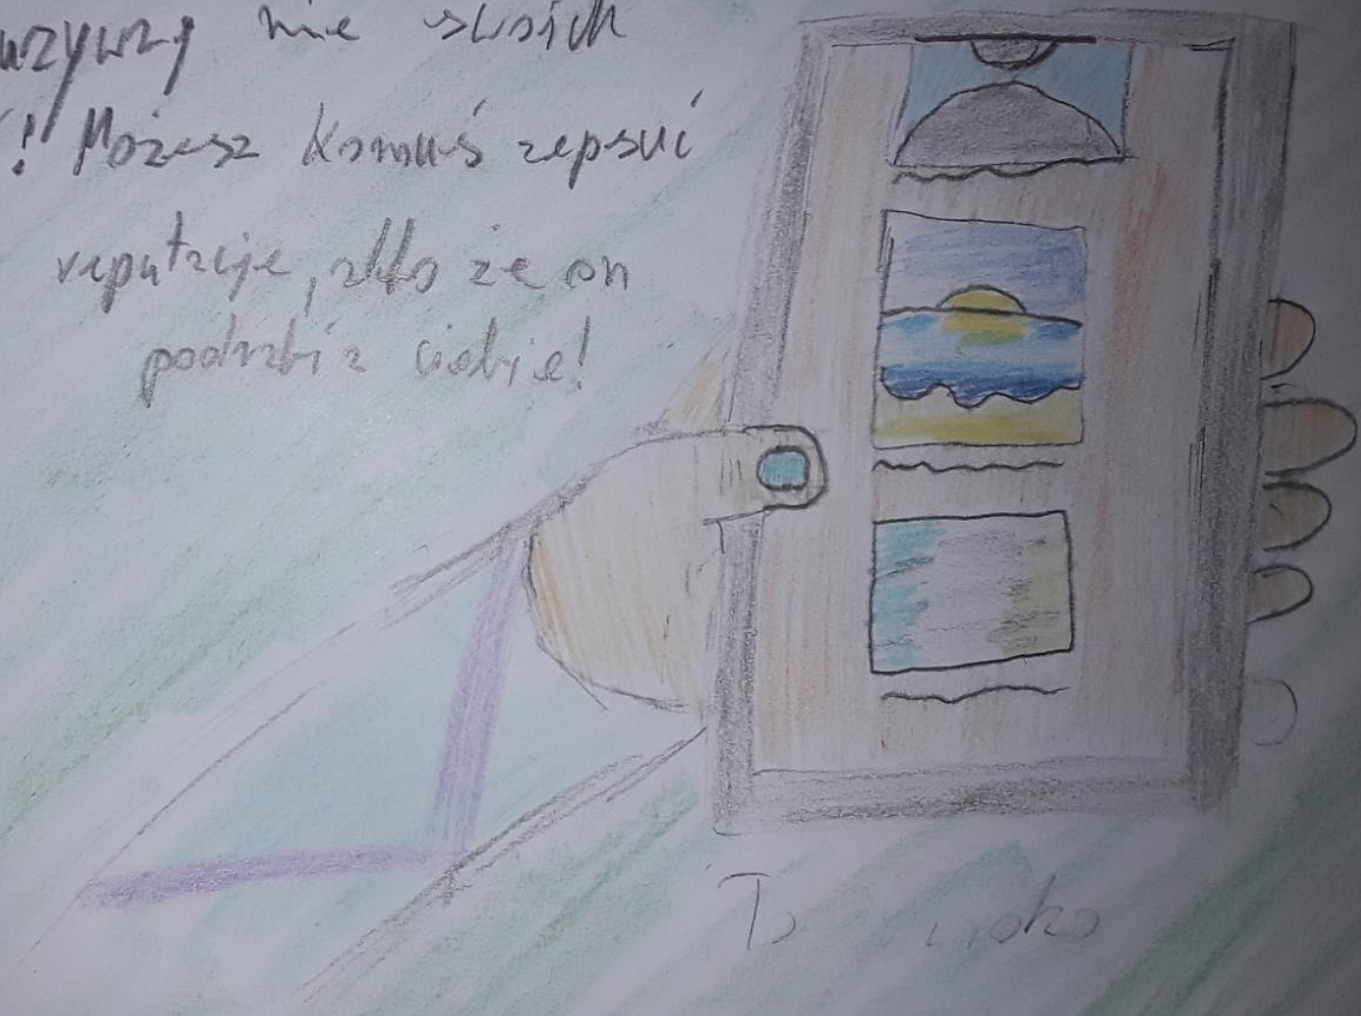 nie swoich
! Możesz komuś zepsuć
reputacje, albo że on
podrabia ciebie!
To